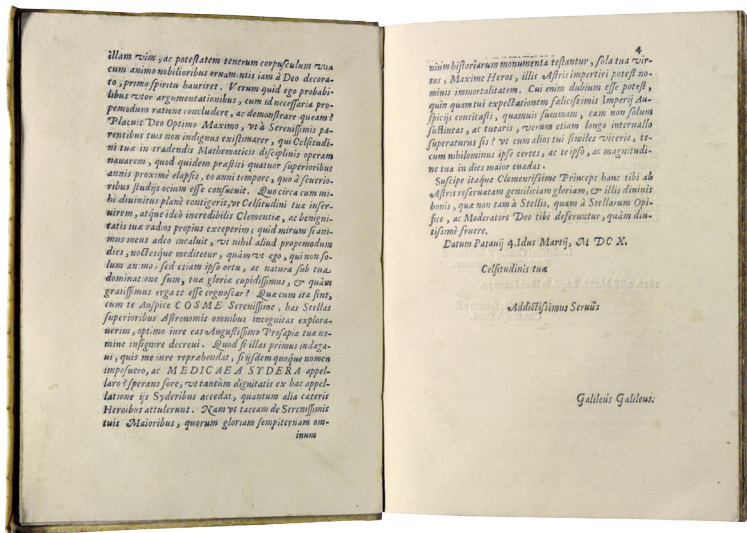 illam vim, ac potestatem tenerum corpusculum vna
cum animo nobilioribus ornamentis iam à Deo decora-
to, primo spiritu hauriret. Verum quid ego probabi-
libus vtor argumentationibus, cum id necessaria pro-
pemodum ratione concludere, ac demonstrare queam?
Placuit Deo Optimo Maximo, vt à Serenissimis pa-
rentibus tuis non indignus existimarer, qui Celsitudi-
ni tuæ in tradendis Mathematicis disciplinis operam
nauarem, quod quidem præstiti quatuor superioribus
annis proximè elapsis, eo anni tempore, quo à seuerio-
ribus studijs ocium esse consueuit. Quo circa cum mi-
hi diuinitus planè contigerit, vt Celsitudini tuæ inser-
uirem, atque ideò incredibilis Clementiæ, ac benigni-
tatis tuæ radios propius exceperim; quid mirum si ani-
mus meus adeo incaluit, vt nihil aliud propemodum
dies, noctesque meditetur, quàm vt ego, qui non so-
lum animo, sed etiam ipso ortu, ac natura sub tua
dominatione sum, tuæ gloriæ cupidissimus, & quàm
gratissimus erga te esse cognoscar? Quæ cum ita sint,
cum te Auspice COSME Serenissime, has Stellas
superioribus Astronomis omnibus incognitas explora-
uerim, optimo iure eas Augustissimo Prosapiæ tuæ no-
mine insignire decreui. Quod si illas primus indaga-
ui, quis me iure repræhendat, si ijsdem quoque nomen
imposuero, ac MEDICAEA SYDERA appel-
laro? sperans fore, vt tantum dignitatis ex hac appel-
latione ijs Syderibus accedat, quantum alia cæteris
Heroibus attulerunt. Nam vt taceam de Serenissimis
tuis Maioribus, quorum gloriam sempiternam om-
inum
4
nium historiarum monumenta testantur, sola tua vir-
tus, Maxime Heros, illis Astris impertiri potest no-
minis immortalitatem. Cui enim dubium esse potest,
quin quam tui expectationem fælicissimis Imperij Au-
spicijs concitasti, quamuis summam, eam non solum
sustineas, ac tuearis, verum etiam longo interuallo
superaturus sis? vt cum alios tui similes viceris, te-
cum nihilominus ipse certes, ac te ipso, ac magnitudi-
ne tua in dies maior euadas.
Suscipe itaque Clementissime Princeps hanc tibi ab
Astris reseruatam gentiliciam gloriam, & illis diuinis
bonis, quæ non tam à Stellis, quam à Stellarum Opi-
fice, ac Moderatore Deo tibi deferuntur, quàm diu-
tissimè fruere.
Datum Patauij 4. Idus Martij, M DC X.
Celsitudinis tuæ
Addictissimus Seruus
Galileus Galileus.